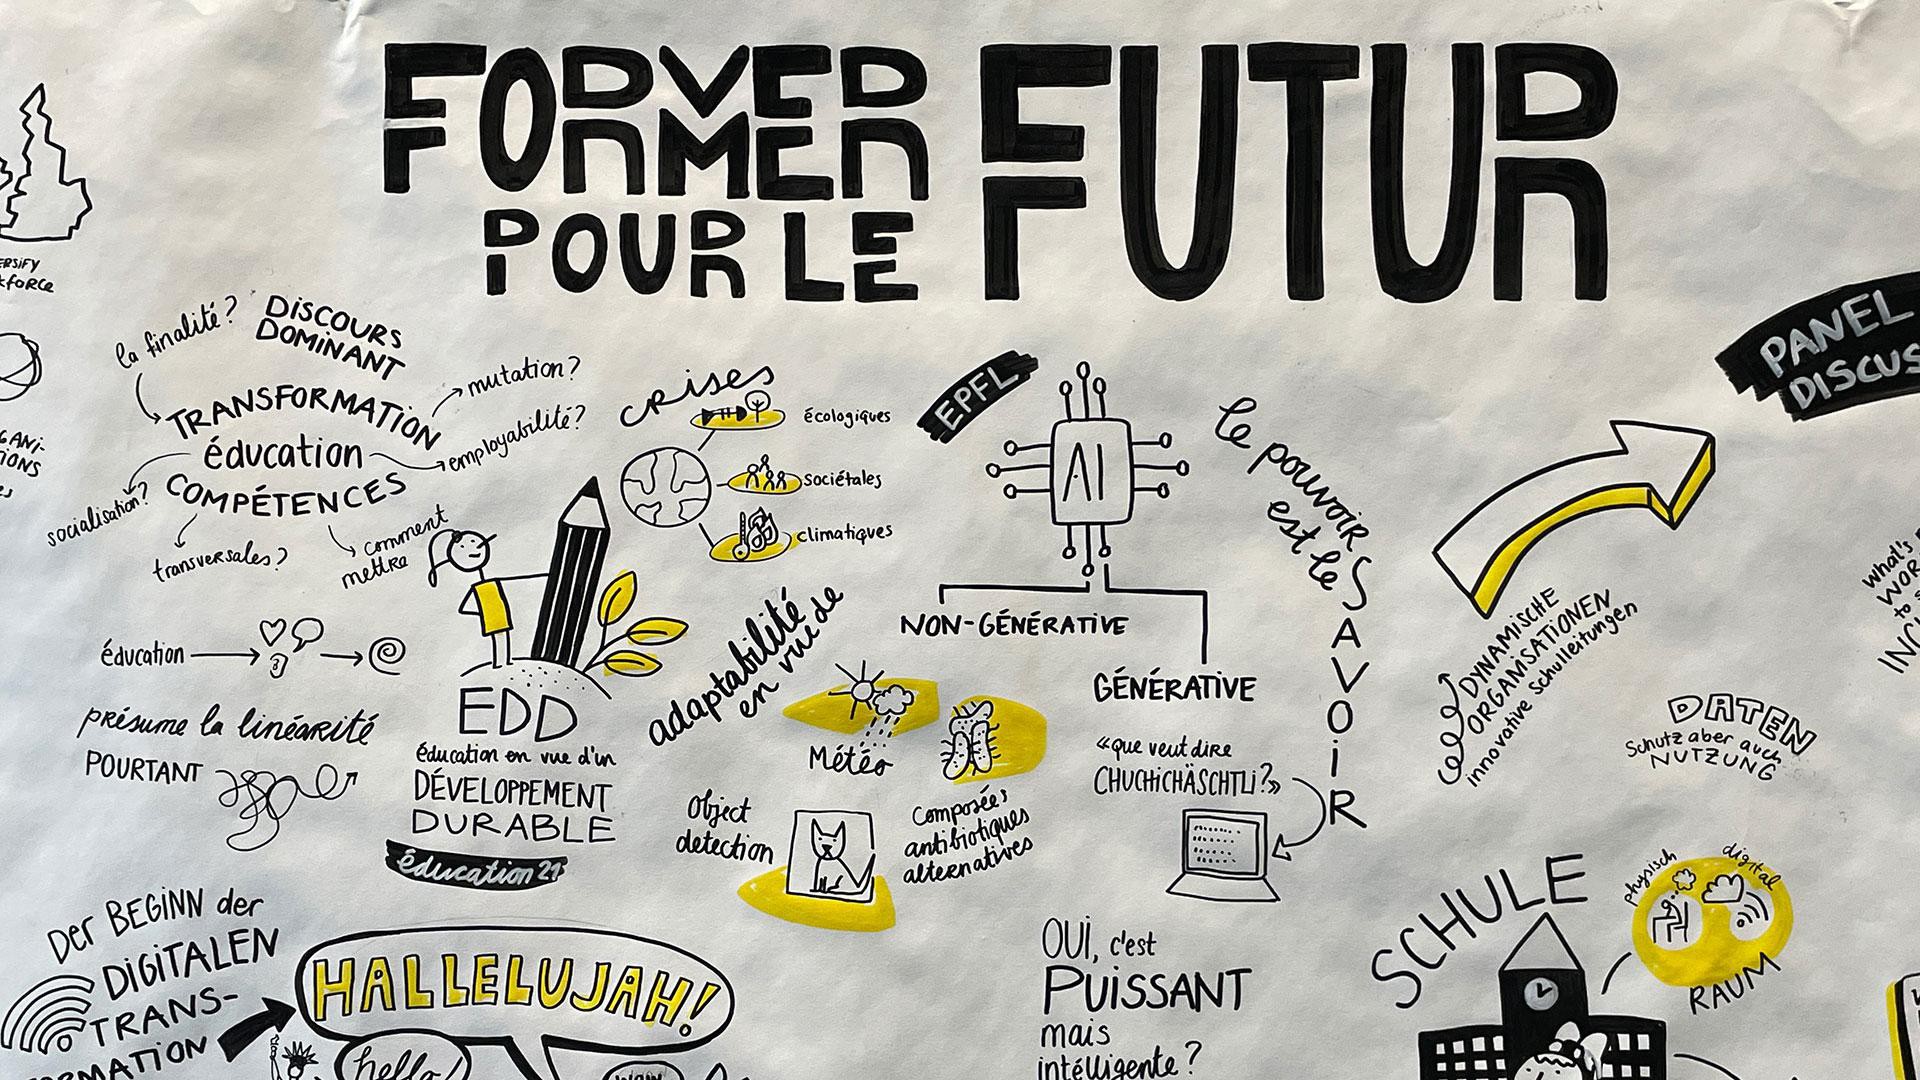 FORMER
POUR LE
FUTUR
la finalité?
DISCOURS
DOMINANT
TRANSFORMATION
éducation
COMPÉTENCES
mutation?
employabilité?
socialisation?
transversales?
comment
mettre
éducation
présume la linéarité
POURTANT
EDD
éducation en vue d'un
DÉVELOPPEMENT
DURABLE
éducation21
crises
écologiques
sociétales
climatiques
adaptabilité
en vue de
EPFL
AI
NON-GÉNÉRATIVE
GÉNÉRATIVE
Météo
Object
detection
Composées
antibiotiques
alternatives
«que veut dire
CHUCHICHÄSCHTLI?»
le pouvoir
est le
SAVOIR
OUI, c'est
PUISSANT
mais
intélligente?
PANEL
DISCUS
DYNAMISCHE
ORGANISATIONEN
innovative Schulleitungen
DATEN
Schutz aber auch
NUTZUNG
SCHULE
physisch
digital
RAUM
Der BEGINN der
DIGITALEN
TRANS-
FORMATION
HALLELUJAH!
hello!
what's